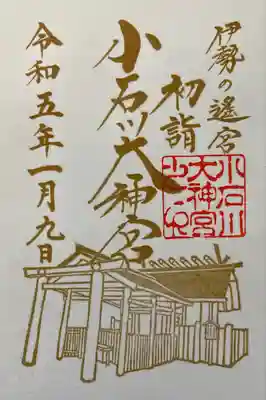 伊勢の遙宮
初詣
小石川大神宮
令和五年一月九日
小石川
大神宮